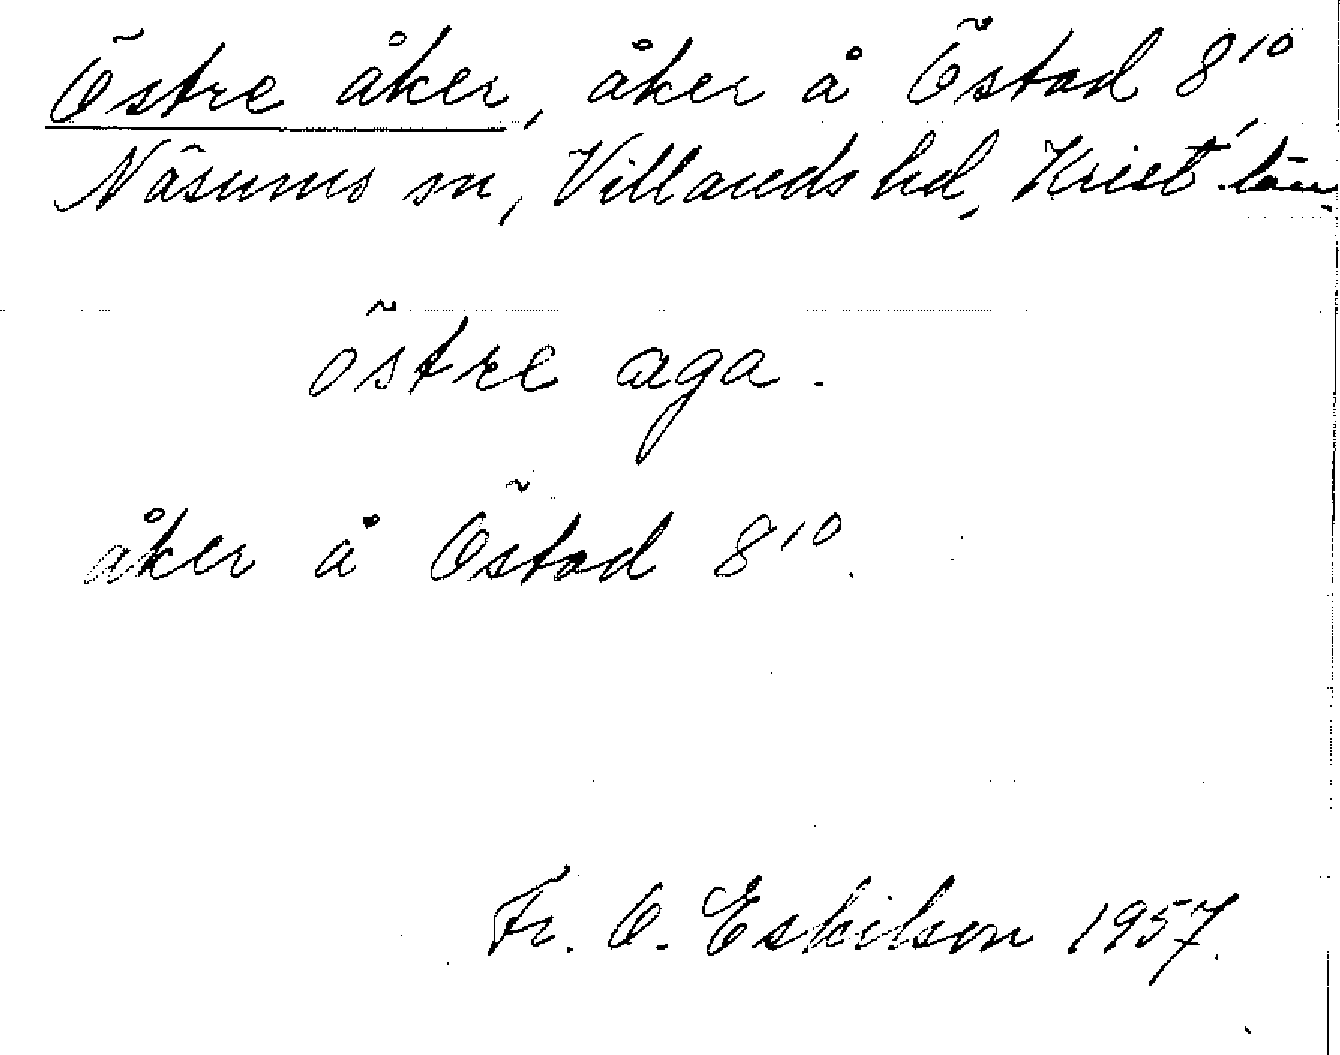 Östre åker, åker å Östad 8¹⁰
Näsums sn, Villands hd, Krist. län.
östre aga.
åker å Östad 8¹⁰.
Fr. O. Eskilson 1957.